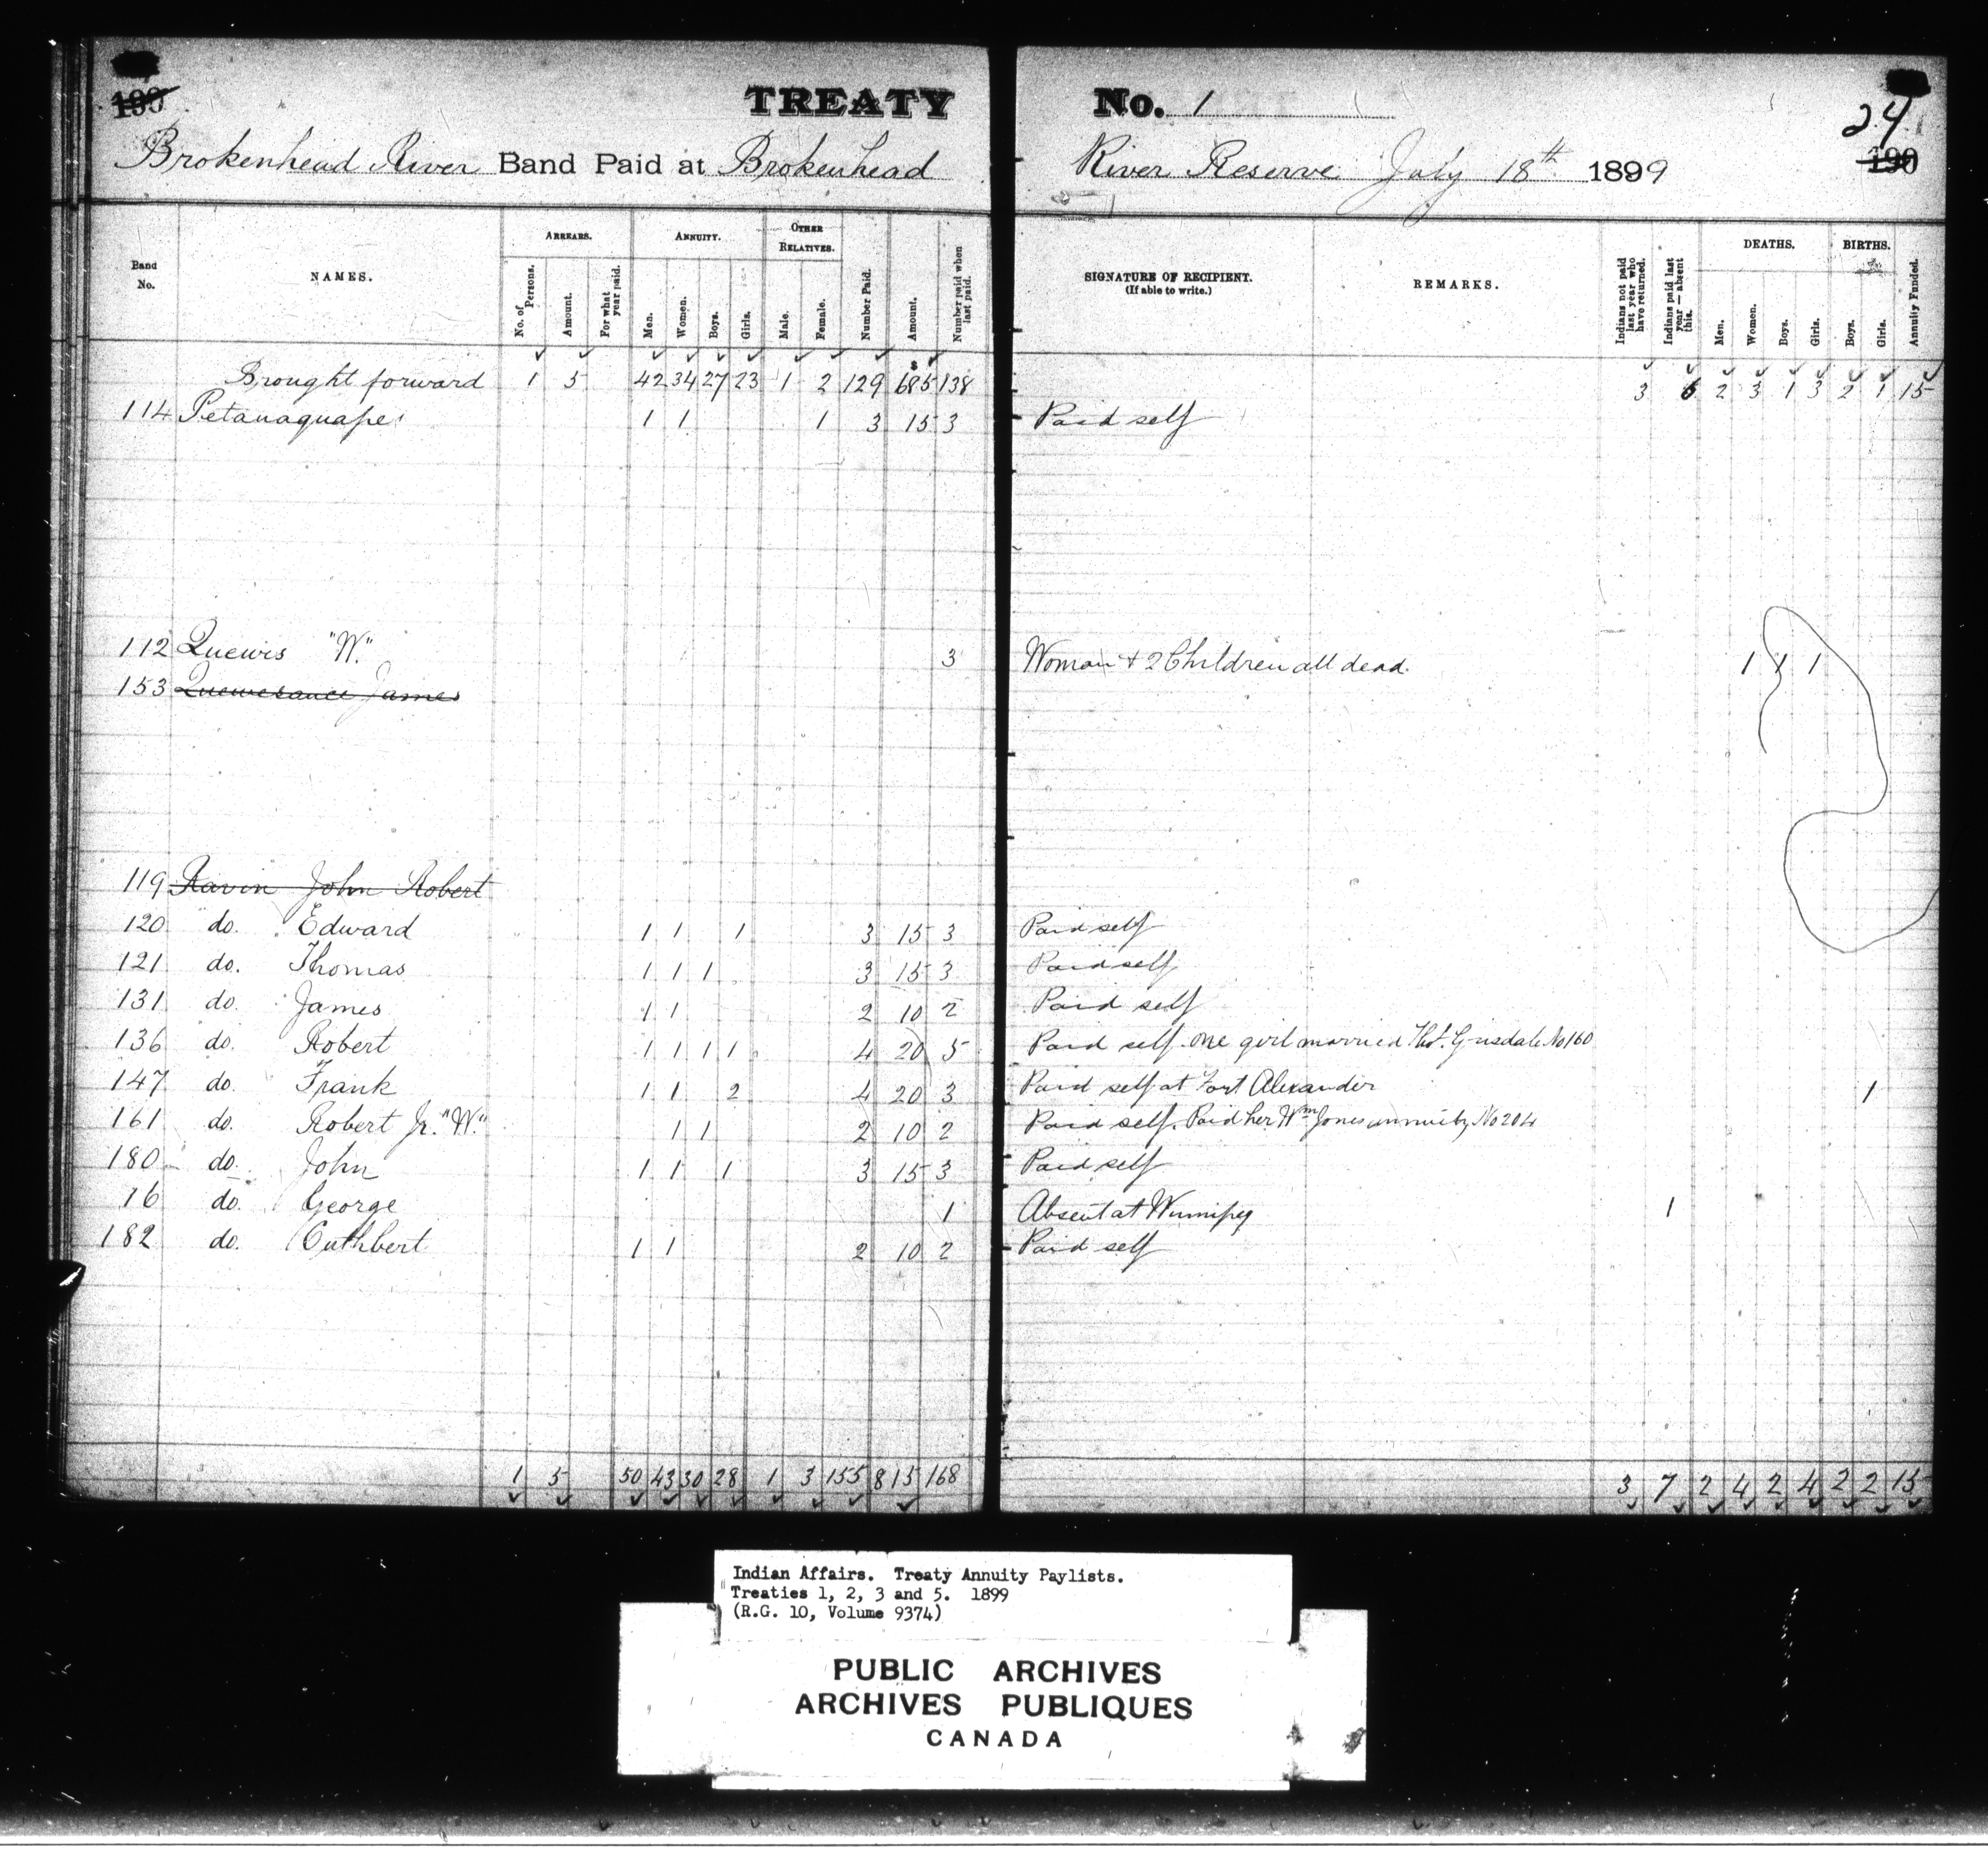 190
TREATY No. 1
24
190
Brokenhead River Band Paid at Brokenhead River Reserve July 18th 1899
Band No. NAMES. ARREARS. No. of Persons. Amount. For what year paid. ANNUITY. Men. Women. Boys. Girls. OTHER RELATIVES. Male. Female. Number Paid. Amount. Number paid when last paid. SIGNATURE OF RECIPIENT. (If able to write.) REMARKS. Indians not paid last year who have returned. Indians paid last year — absent this. DEATHS. Men. Women. Boys. Girls. BIRTHS. Boys. Girls. Annuity Funded.
Brought forward 1 5 42 34 27 23 1 2 129 $685 138 3 6 2 3 1 3 2 1 15
114 Petanaquape 1 1 1 3 15 3 Paid self
112 Quewis "W." 3 Woman + 2 Children all dead. 1 1 1
153 Quewesance James
119 Ravin John Robert
120 do. Edward 1 1 1 3 15 3 Paid self
121 do. Thomas 1 1 1 3 15 3 Paid self
131 do. James 1 1 2 10 2 Paid self
136 do. Robert 1 1 1 1 4 20 5 Paid self. one girl married Thos. Grisdale No 160
147 do. Frank 1 1 2 4 20 3 Paid self at Fort Alexander 1
161 do. Robert Jr. "W." 1 1 2 10 2 Paid self. Paid her Wm Jones annuity No 204
180 do. John 1 1 1 3 15 3 Paid self
16 do. George 1 Absent at Winnipeg 1
182 do. Cuthbert 1 1 2 10 2 Paid self
1 5 50 43 30 28 1 3 155 815 168 3 7 2 4 2 4 2 2 15
Indian Affairs. Treaty Annuity Paylists.
Treaties 1, 2, 3 and 5. 1899
(R.G. 10, Volume 9374)
PUBLIC ARCHIVES
ARCHIVES PUBLIQUES
CANADA